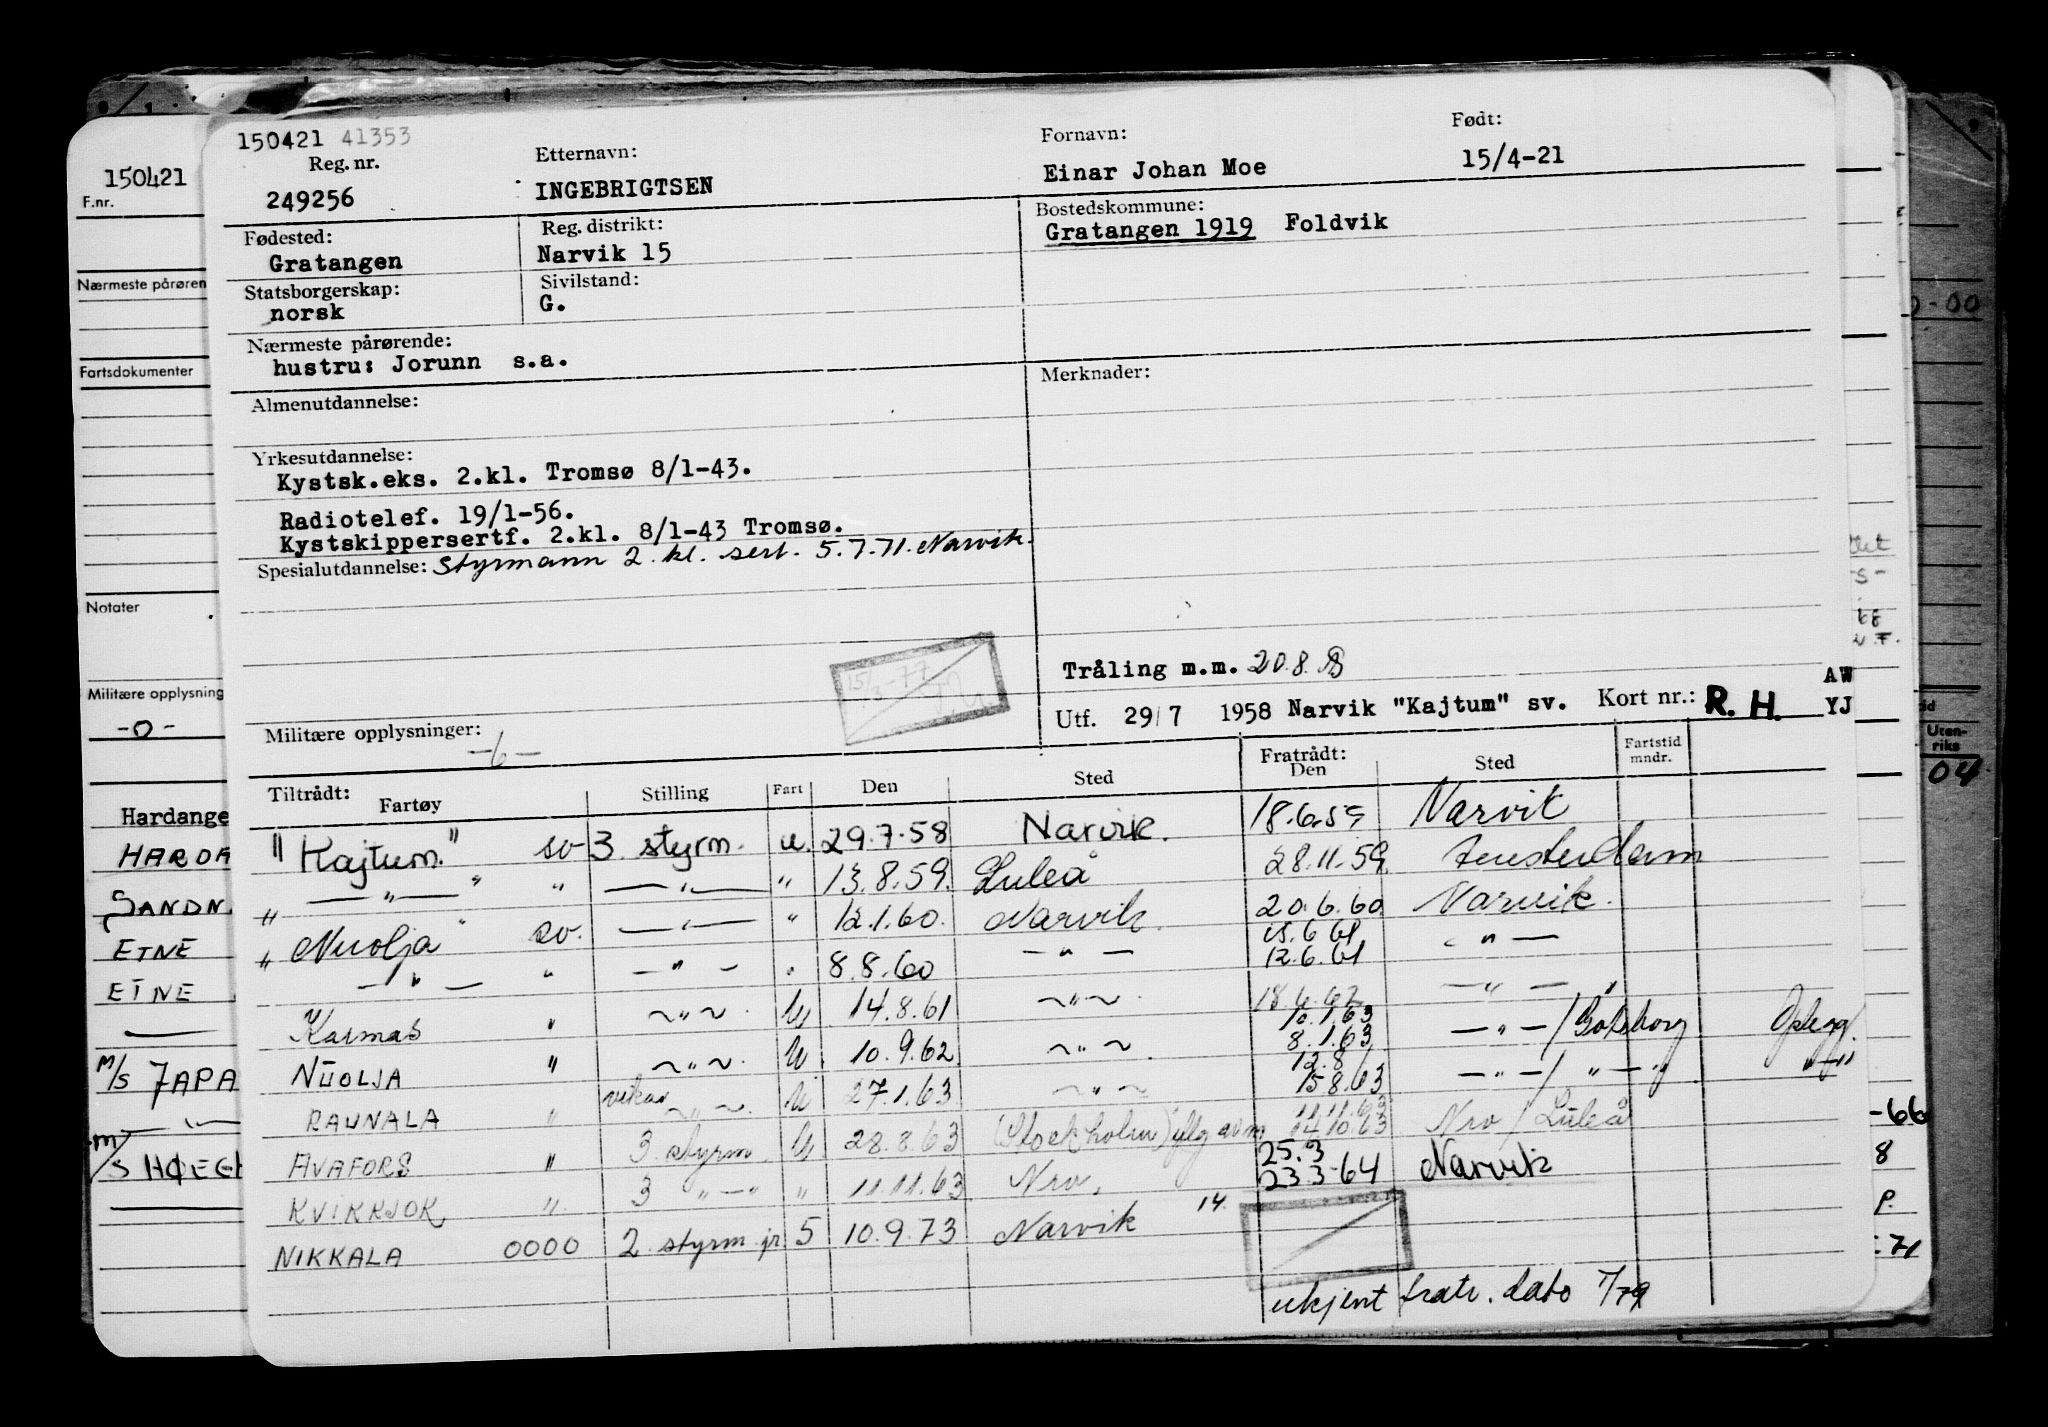 150421 41353
Reg. nr. Etternavn: Fornavn: Født:
249256 INGEBRIGTSEN Einar Johan Moe 15/4-21
Fødested: Reg. distrikt: Bostedskommune:
Gratangen Narvik 15 Gratangen 1919 Foldvik
Statsborgerskap: Sivilstand:
norsk G.
Nærmeste pårørende:
hustru: Jorunn s.a.
Almenutdannelse: Merknader:
Yrkesutdannelse:
Kystsk.eks. 2.kl. Tromsø 8/1-43.
Radiotelef. 19/1-56.
Kystskippersertf. 2.kl. 8/1-43 Tromsø.
Spesialutdannelse: Styrmann 2. kl. sert. 5.7.71. Narvik.
15/3-77
Tråling m.m. 20.8.
AW
Utf. 29/7 1958 Narvik "Kajtum" sv. Kort nr.: R. H. YJ
Militære opplysninger: -6-
Tiltrådt: Fartøy Stilling Fart Den Sted Fratrådt: Den Sted Fartstid mndr.
"Kajtum" sv 3. styrm. u. 29.7.58 Narvik. 18.6.59 Narvik
" — " — " " — " — " 13.8.59. Luleå 28.11.59
" Nuolja " sv. — " — " 12.1.60. Narvik. 20.6.60 Narvik.
" — " — " — " — . 8.8.60 — " — 15.6.61 12.6.61 — " —
Karmas " ~ " ~ U 14.8.61 ~ " ~ 18.6.62 — " —
NUOLJA " ~ " ~ U. 10.9.62 ~ " ~ 10.1.63 8.1.63 — " — / Göteborg Oplegg.
RAUNALA " vikar ~ " ~ U 27.1.63 ~ " ~ 12.8 15.8.63 — " — / " — " " — "
AVAFORS " 3. styrm. U 28.8.63 (Stockholm) 11.11.63 14.10.63 Nrv / Luleå
KVIKKJOK " 3 " — " " 11.11.63 Nrv. 25.3 23.3-64 Narvik
NIKKALA 0000 2. styrm. jr 5 10.9.73 Narvik 14.
ukjent fratr. dato 1/79
150421
F.nr.
Nærmeste pårøren
Fartsdokumenter
Notater
Militære opplysning
-0-
Hardange
HARDA
SANDN
ETNE
ETNE
M/S JAPA
M/S HØEGH
-00
68
Uten-
riks
04
-66
8
P.
71